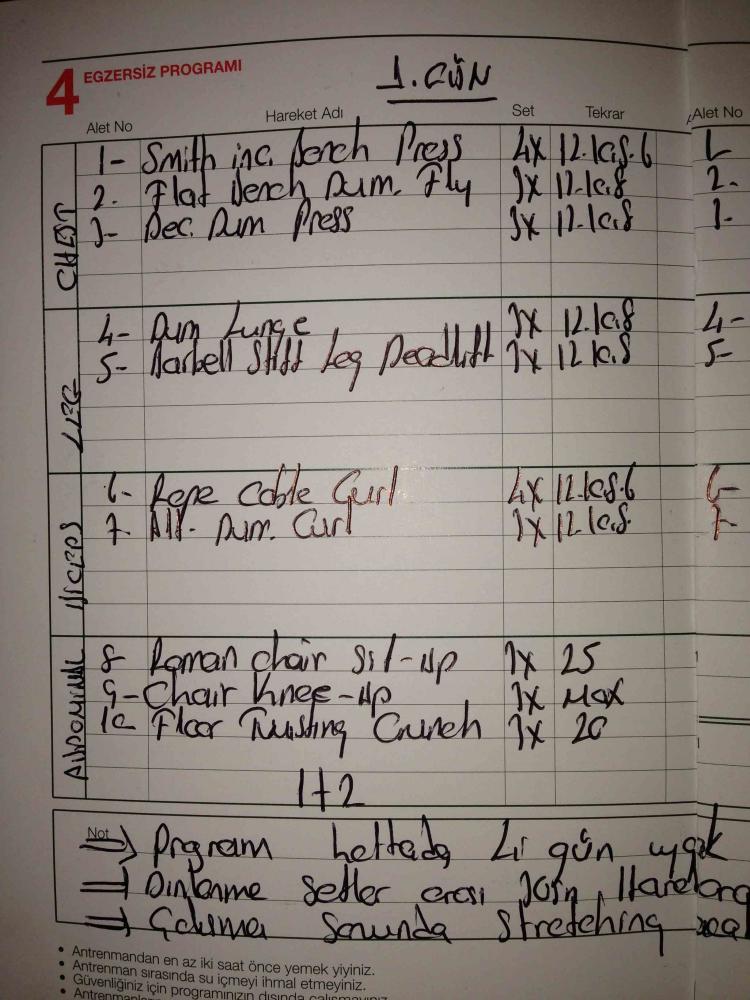 4 EGZERSİZ PROGRAMI
1. GÜN
Alet No Hareket Adı Set Tekrar Alet No
CHEST
1- Smith inc. Bench Press 4x 12.10.8.6 1-
2. Flat Bench Dum. Fly 3x 12.10.8 2.
3- Dec. Dum Press 3x 12.10.8 3-
4- Dum Lunge 3x 12.10.8 4-
5- Barbell Stiff Leg Deadlift 3x 12.10.8 5-
BICEPS
6- Rope Cable Curl 4x 12.10.8.6 6-
7. Alt. Dum. Curl 3x 12.10.8. 7-
ABDOMINAL
8- Roman chair sit-up 3x 25
9- Chair Knee-up 3x MAX
10 Floor Twisting Crunch 3x 20
1+2
Not
⇒ Program haftada 4 gün
⇒ Dinlenme setler arası 30sn,
⇒ Çalışma sonunda stretching
• Antrenmandan en az iki saat önce yemek yiyiniz.
• Antrenman sırasında su içmeyi ihmal etmeyiniz.
• Güvenliğiniz için programınızın dışında çalışmayınız